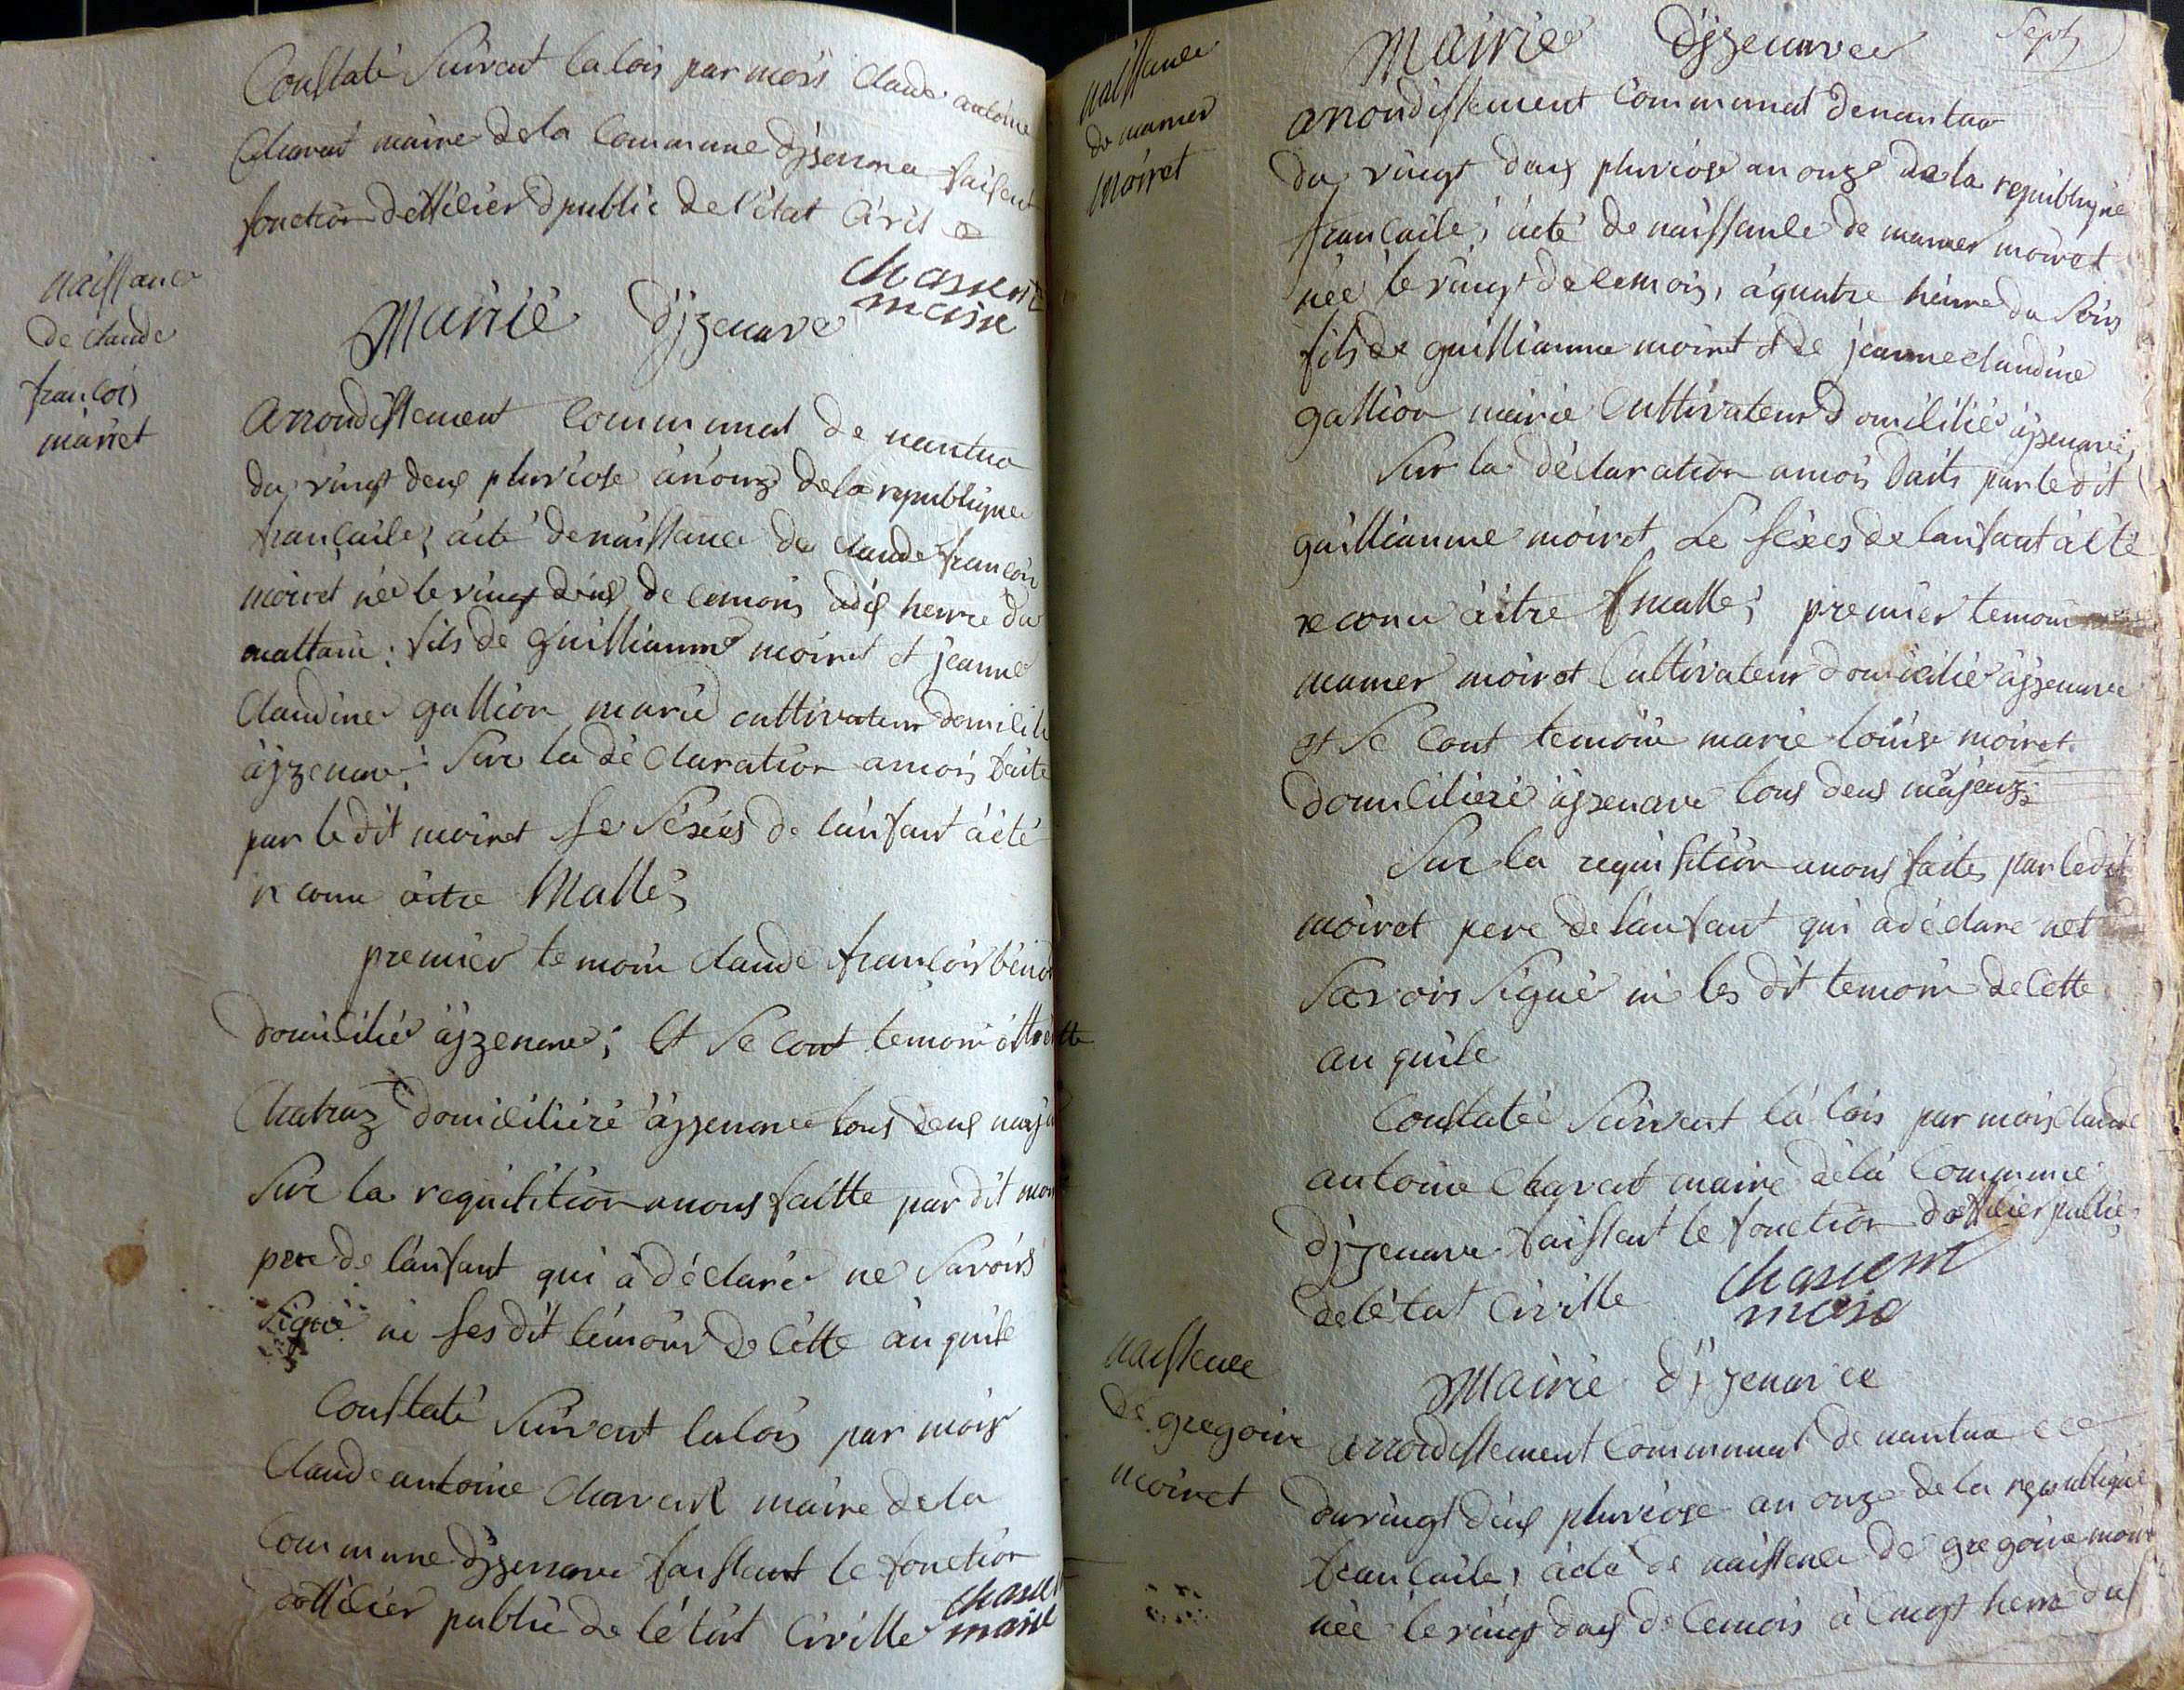 Constaté Suivent la lois par mois Claude antoine
Chavent maire de la Commune djzenave faisent
fonction doffilier dpublic de l'état Civil
Chavent
maire
naissance
de claude
francois
moiret
Mairie djzenave
Arrondissement Communal de nantua
du vingt deux pluviose an onze de la republique
francaise; acte de naissance de claude francois
moiret née le vingt deux de ce mois à dix heure du
mattain; fils de guilliaume moiret et jeanne
Claudine gallion marié cultivateur domicilié
àjzenave; Sur la déclaration amois faite
par le dit moiret Le Séxés de lanfant àété
reconu àitre Malle;
premier temoin claude francois bénoit
domicilié àjzenave; Et Se cont temoin
Chatraz domiciliéré àjzenave tous deux
Sur la requisition anous faitte par dit
pere de lanfant qui a déclaré ne Savoirs
Signé ni les dit témoins de cette an quile
Constaté Suivent la lois par mois
Claude antoine Chavent maire de la
Commune djzenave faissant le fonction
doffilier public de létat Civille
maire
Sept
naissance
de mamer
moiret
Mairie djzenave
arrondissement Communal de nantua
du vingt deux pluviose an onze de la republique
francaise; acté de naissance de mamer moiret
née le vingt de ce mois, à quatre heure du Soirs
fils de guilliaume moiret et de jeanne claudine
gallion mairié Cultivateur domicilié àjzenave;
Sur la déclaration amois faite par le dit
guilliaume moiret Le Séxés de lanfant àété
reconu àitre malle; premier temoin
mamer moiret Cultivateur domicilié àjzenave
et Se Cont temoin marie louise moiret
domiciliéré àjzenave tous deux majeurs
Sur la requisition anous faite par le dit
moiret pere de lanfant qui a déclaré net
Savoirs Signé ni les dit temoin de Cette
an quile
Constatée Suivent la lois par mois claude
antoine Chavent maire dela Commune
djzenave faissent le fonction doffilier public
de létat Civille
Chavent
maire
naissence
de gregoire
moiret
Mairie djzenave
Arrondissement Communal de nantua
du vingt deux pluviose an onze de la republique
francaise, acte de naissence de gregoire moiret
née le vingt deux de ce mois à heure du